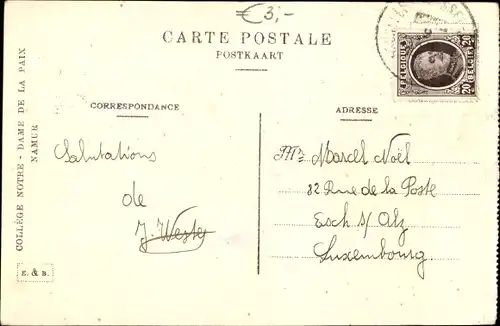 €3,-
CARTE POSTALE
POSTKAART
BELGIQUE
BELGIË
20 20
CORRESPONDANCE
ADRESSE
Salutations
de
J. Wester
Mr Marcel Noël
82 Rue de la Poste
Esch s/Alz
Luxembourg
COLLÈGE NOTRE - DAME DE LA PAIX
NAMUR
E. & B.